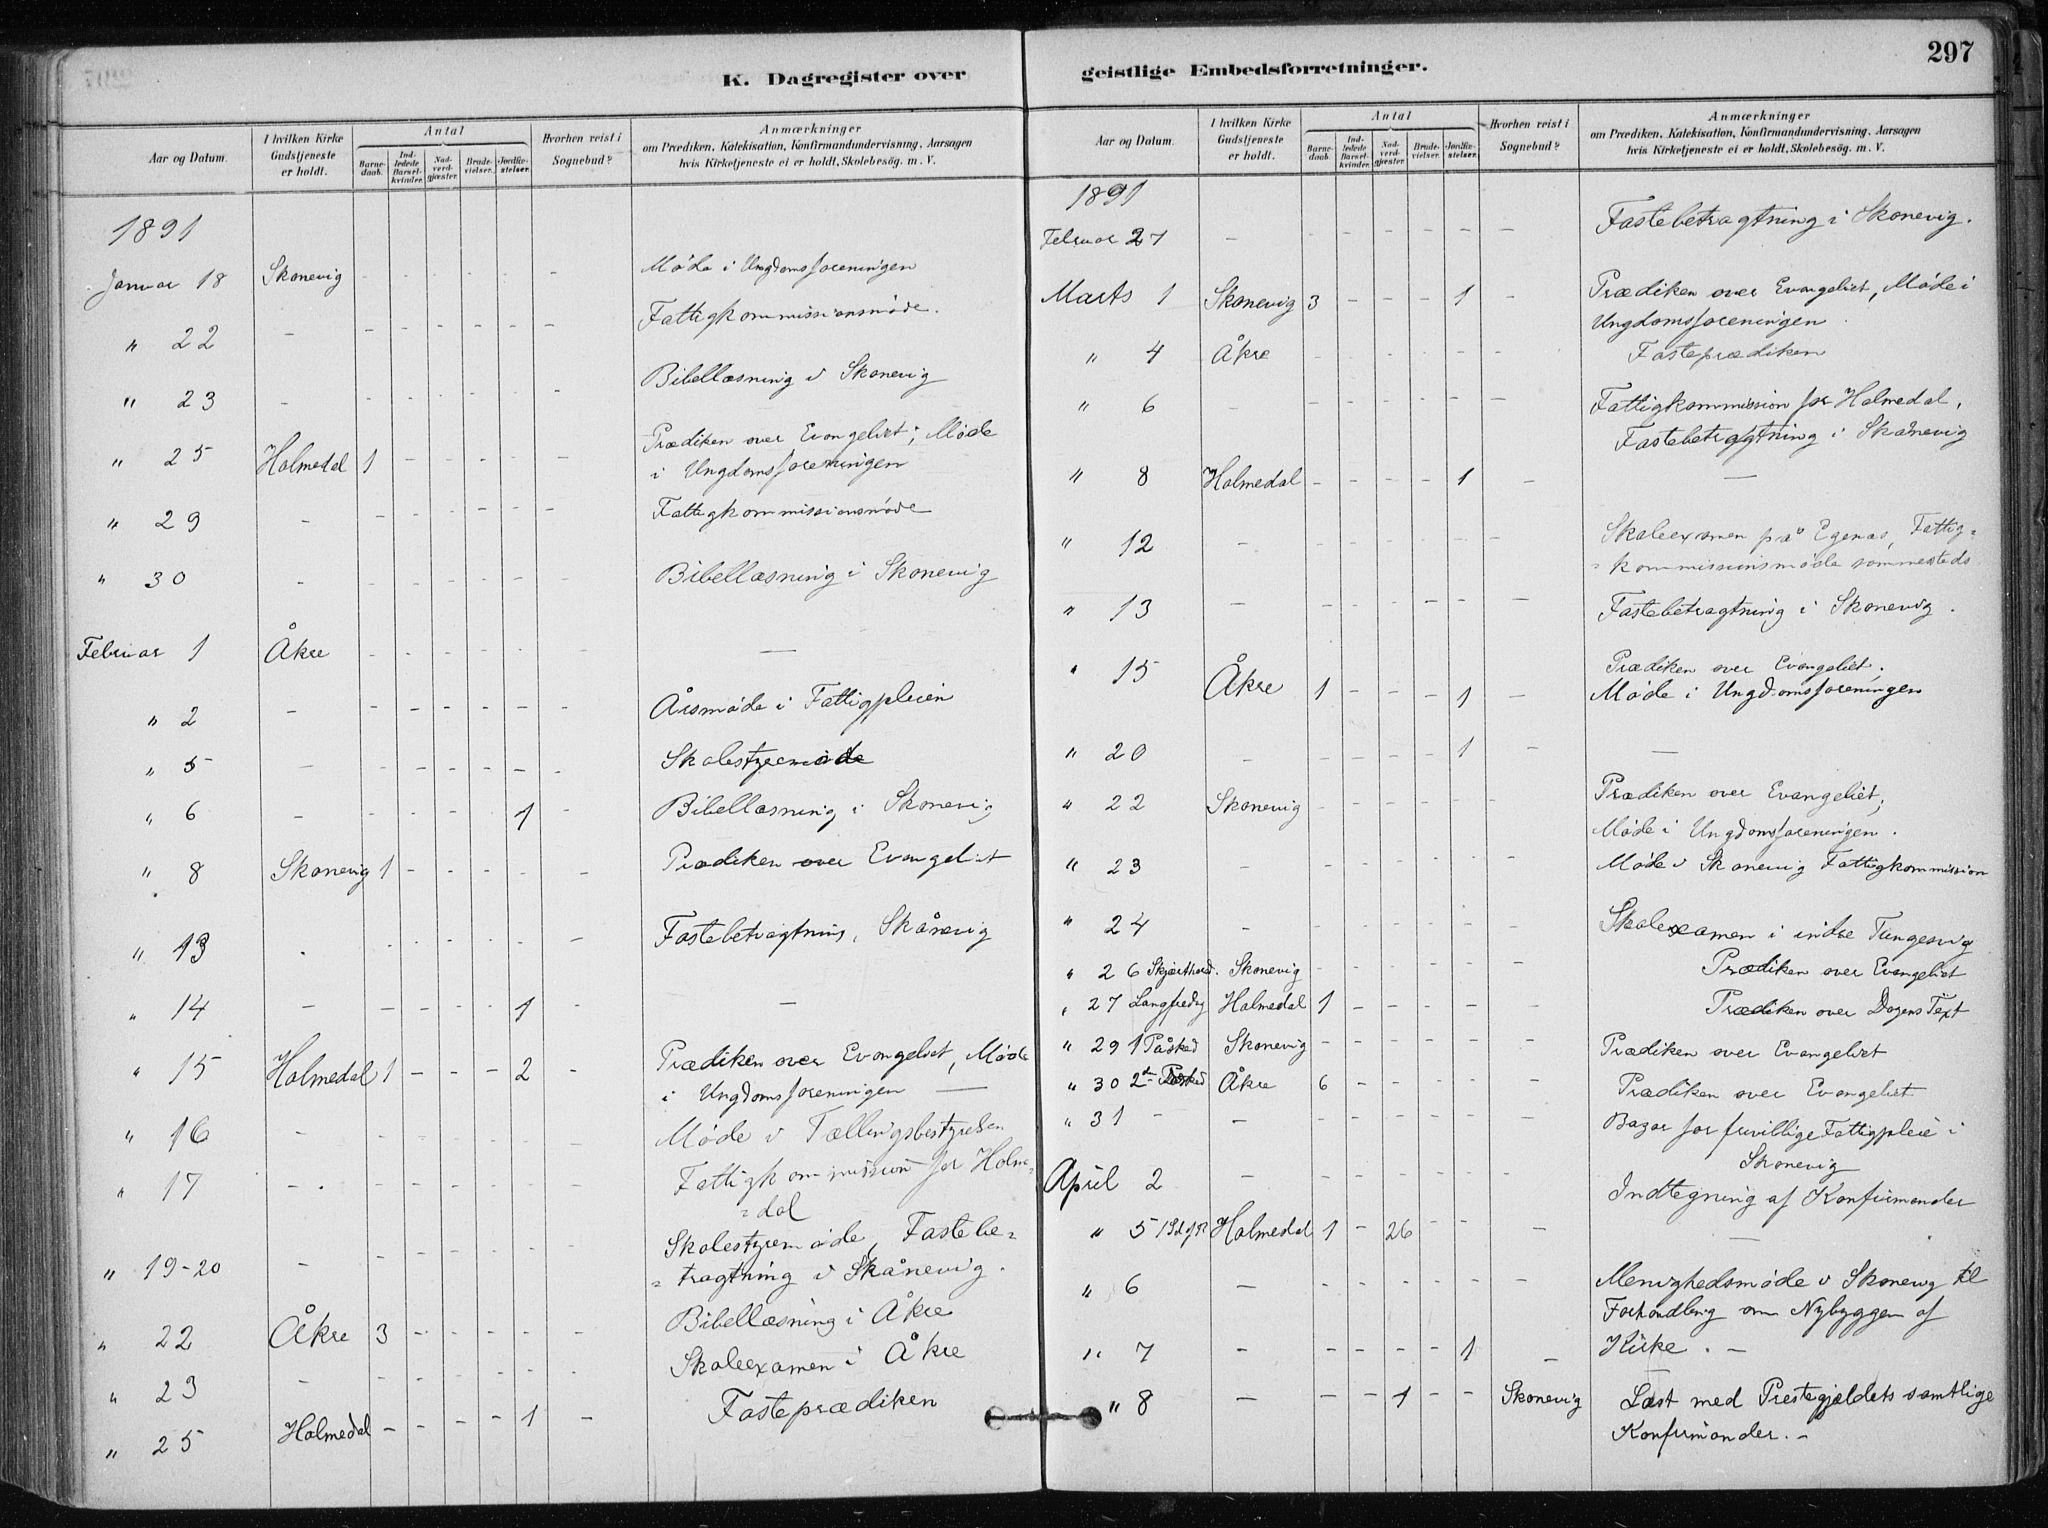 297
K. Dagregister over geistlige Embedsforretninger.
Aar og Datum.
I hvilken Kirke Gudstjeneste er holdt.
Antal
Barnedaab.
Indledede Barselkvinder.
Nadverdgjæster.
Brudevielser.
Jordfæstelser.
Hvorhen reist i Sognebud?
Anmærkninger
om Prædiken, Katekisation, Konfirmandundervisning, Aarsagen
hvis Kirketjeneste ei er holdt, Skolebesög. m. V.
1891
Januar 18 Skonevig - - - - - - Møde i Ungdomsforeningen
" 22 - - - - - - - Fattigkommissionsmøde.
" 23 - - - - - - - Bibellæsning i Skonevig
" 25 Holmedal 1 - - - - - Prædiken over Evangeliet; Møde
i Ungdomsforeningen
" 29 - - - - - - - Fattigkommissionsmøde
" 30 - - - - - - - Bibellæsning i Skonevig
Februar 1 Åkre - - - - - - —
" 2 - - - - - - - Årsmøde i Fattigpleien
" 5 - - - - - - - Skolestyremøde
" 6 - - - - - 1 - Bibellæsning i Skonevig
" 8 Skonevig 1 - - - - - Prædiken over Evangeliet
" 13 - - - - - - - Fastebetragtning, Skånevig
" 14 - - - - - 1 - —
" 15 Holmedal 1 - - - 2 - Prædiken over Evangeliet, Møde
i Ungdomsforeningen —
" 16 - - - - - - - Møde i Tællingsbestyrelsen
" 17 - - - - - - - Fattigkommission for Holme=
=dal
" 19-20 - - - - - - - Skolestyremøde, Fastebe=
=tragtning i Skånevig.
" 22 Åkre 3 - - - - - Bibellæsning i Åkre
" 23 - - - - - - - Skoleexamen i Åkre
" 25 Holmedal - - - - 1 - Fasteprædiken
Aar og Datum.
I hvilken Kirke Gudstjeneste er holdt.
Antal
Barnedaab.
Indledede Barselkvinder.
Nadverdgjæster.
Brudevielser.
Jordfæstelser.
Hvorhen reist i Sognebud?
Anmærkninger
om Prædiken, Katekisation, Konfirmandundervisning, Aarsagen
hvis Kirketjeneste ei er holdt, Skolebesög. m. V.
1891
Februar 27 - - - - - - - Fastebetragtning i Skonevig.
Marts 1 Skonevig 3 - - - 1 - Prædiken over Evangeliet, Møde i
Ungdomsforeningen.
" 4 Åkre - - - - - - Fasteprædiken
" 6 - - - - - - - Fattigkommission for Holmedal,
Fastebetragtning i Skånevig
" 8 Holmedal - - - - 1 - —
" 12 - - - - - - - Skoleexamen på Egenæs, Fattig=
=kommissionsmøde sammesteds
" 13 - - - - - - - Fastebetragtning i Skonevig.
" 15 Åkre 1 - - - 1 - Prædiken over Evangeliet;
Møde i Ungdomsforeningen
" 20 - - - - - 1 - —
" 22 Skonevig - - - - - - Prædiken over Evangeliet;
Møde i Ungdomsforeningen.
" 23 - - - - - - - Møde i Skonevig Fattigkommission
" 24 - - - - - - - Skolexamen i indre Tungesvig
" 26 Skjærthord. Skonevig - - - - - - Prædiken over Evangeliet
" 27 Langfredag Holmedal 1 - - - - - Prædiken over Dagens Text
" 29 1 Påsked Skonevig - - - - - - Prædiken over Evangeliet
" 30 2den Påsked Åkre 6 - - - - - Prædiken over Evangeliet
" 31 - - - - - - - Bazar for frivillige Fattigpleie i
Skonevig
April 2 - - - - - - - Indtegning af Konfirmander
" 5 1 Sd. f. P. Holmedal 1 - 26 - - - —
" 6 - - - - - - - Menighedsmøde i Skonevig til
Forhandling om Nybyggen af
" 7 - - - - - 1 - Kirke. -
" 8 - - - 1 - - Skonevig Læst med Prestegjeldets samtlige
Konfirmander. -